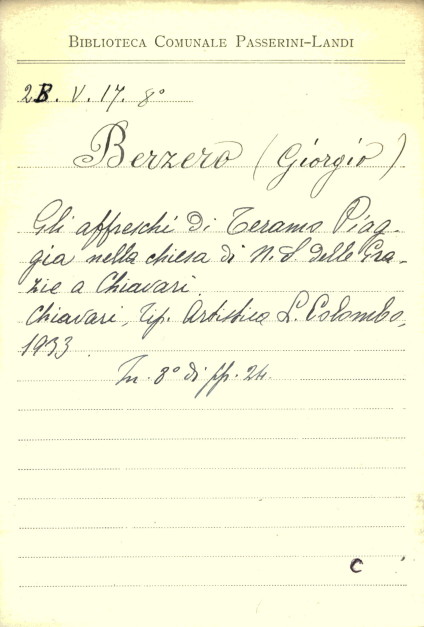 BIBLIOTECA COMUNALE PASSERINI-LANDI
2B. V. 17. 8°
Berzero (Giorgio)
Gli affreschi di Teramo Piag-
gia nella chiesa di N. S. delle Gra-
zie a Chiavari.
Chiavari, Tip. Artistica L. Colombo,
1933.
In. 8° di pp. 24.
C